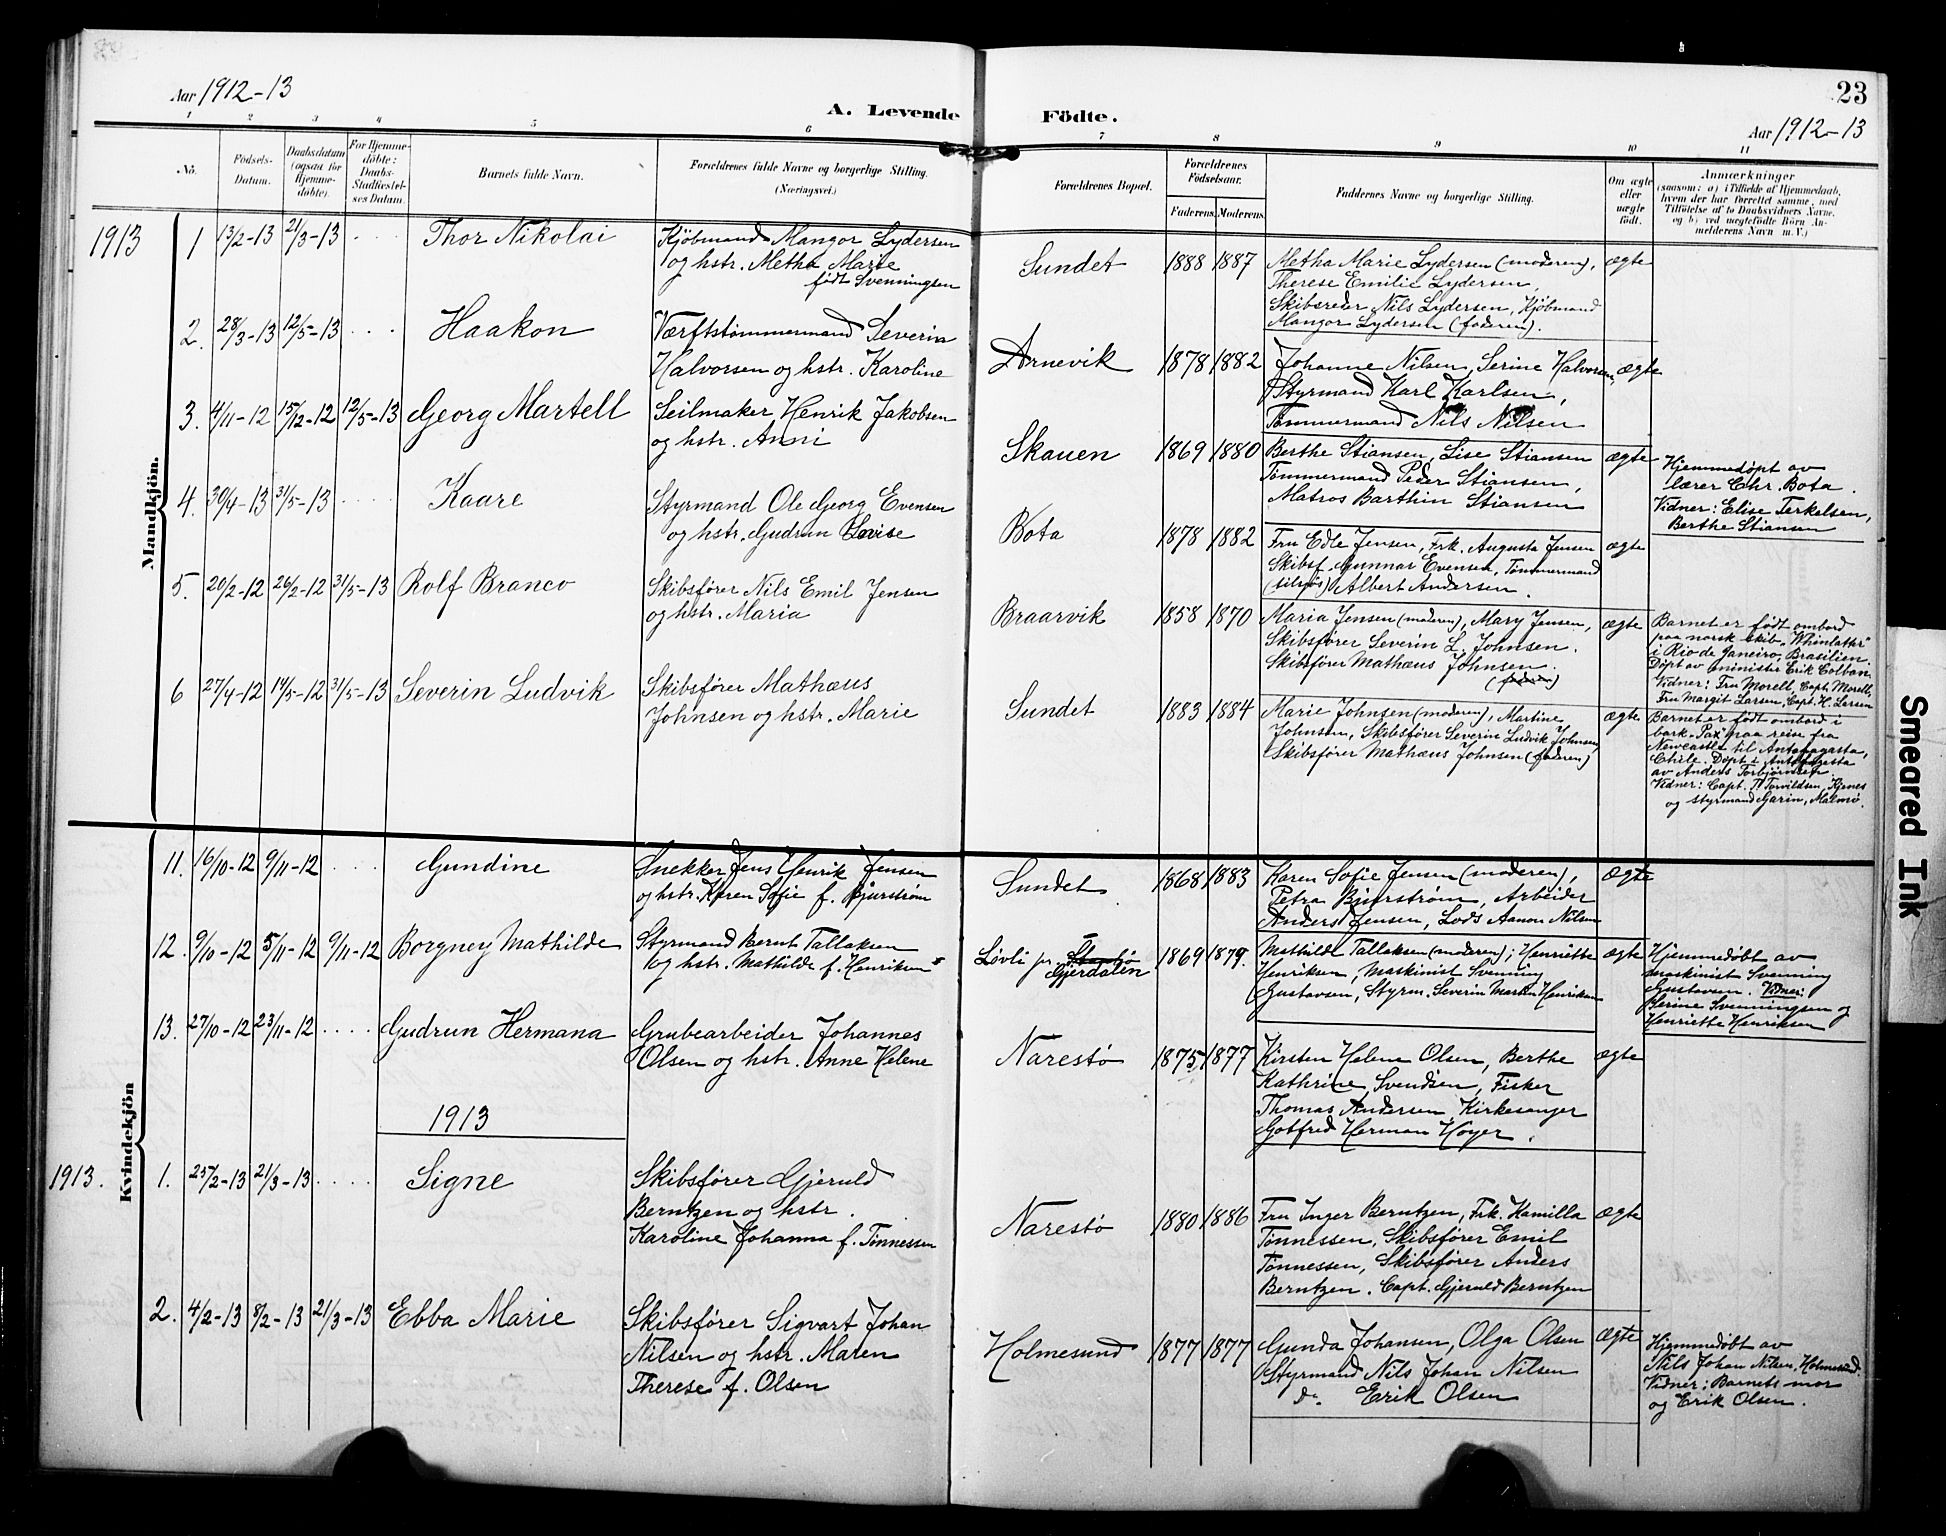 Aar 1912-13
A. Levende Födte.
23
Aar 1912-13
1 2 3 4 5 6 7 8 9 10 11
No.
Födsels-Datum.
Daabsdatum (ogsaa for Hjemme-døbte).
For Hjemme-döbte: Daabs-Stadfæstel-ses Datum.
Barnets fulde Navn.
Forældrenes fulde Navne og borgerlige Stilling. (Næringsvei.)
Forældrenes Bopæl.
Forældrenes Födselsaar.
Faderens. Moderens.
Faddernes Navne og borgerlige Stilling.
Om ægte eller uægte født.
Anmærkninger
(saasom: a) i Tilfælde af Hjemmedaab,
hvem der har forrettet samme, med
Tilföielse af to Daabsvidners Navne,
og b) ved uægtefödte Börn An-
melderens Navn m.V.)
Mandkjön.
1913
1 13/2-13 21/3-13 Thor Nikolai
Kjøbmand Mangor Lydersen
og hstr. Metha Marie
født Svenningsen
Sundet 1888 1887
Metha Marie Lydersen (moderen),
Therese Emilie Lydersen,
Skibsreder Nils Lydersen, Kjöbmand
Mangor Lydersen (faderen).
ægte
2. 28/3-13 12/5-13 Haakon
Værftstømmermand Severin
Halvorsen og hstr. Karoline
Arnevik 1878 1882
Johanne Nilsen, Serine Halvorsen,
Styrmand Karl Karlsen,
Tømmermand Nils Nilsen
ægte
3. 4/11-12 15/12-12 12/5-13 Georg Martell
Seilmaker Henrik Jakobsen
og hstr. Anni
Skauen 1869 1880
Berthe Stiansen, Lise Stiansen
Tømmermand Peder Stiansen,
Matros Barthin Stiansen
ægte
Hjemmedøpt av
lærer Chr. Bota.
Vidner: Elise Terkelsen,
Berthe Stiansen
4. 30/4-13 31/5-13 Kaare
Styrmand Ole Georg Evensen
og hstr. Gudrun Lovise
Bota 1878 1882
Fru Edle Jensen, Frk. Augusta Jensen
Skibsf. Gunnar Evensen, Tømmermand
(tilsjøs) Albert Andersen.
ægte
5. 20/2-12 26/2-12 31/5-13 Rolf Branco
Skibsfører Nils Emil Jensen
og hstr. Maria
Braarvik 1858 1870
Maria Jensen (moderen), Mary Jensen,
Skibsfører Severin L. Johnsen.
Skibsfører Mathæus Johnsen.
(faderen)
ægte
Barnet er født ombord
paa norsk skib "Whinlatter"
i Rio de Janeiro, Brasilien.
Døpt av minister Erik Colban
Vidner: Fru Morell, Capt. Morell,
Fru Margit Larsen, Capt. H. Larsen
6 27/4-12 14/5-12 31/5-13 Severin Ludvik
Skibsfører Mathæus
Johnsen og hstr. Marie
Sundet 1883 1884
Marie Johnsen (moderen), Martine
Johnsen, Skibsfører Severin Ludvik Johnsen,
Skibsfører Mathæus Johnsen (faderen)
ægte
Barnet er født ombord i
bark "Pax" paa reise fra
Newcastle til Antofagasta,
Chile. Døpt i Antofagasta
av Anders Torbjørnsen.
Vidner: Capt. T. Torvildsen, Kjenes
og styrmand Garin, Malmø.
Kvindekjön
11. 16/10-12 9/11-12 Gundine
Snekker Jens Henrik Jensen
og hstr. Karen Sofie f. Bjurstrøm
Sundet 1868 1883
Karen Sofie Jensen (moderen),
Petra Bjurstrøm, Arbeider
Anders Jensen, Lods Aanon Nilsen
ægte
12. 9/10-12 5/11-12 9/11-12 Borgney Mathilde
Styrmand Bernt Tallaksen
og hstr. Mathilde f. Henriksen
Løvli pr. Gjerdalen 1869 1879.
Mathilde Tallaksen (moderen); Henriette
Henriksen, Maskinist Svenning
Gustavsen, Styrm. Severin Martin Henriksen
ægte
Hjemmedøbt av
maskinist Svenning
Gustavsen. Vidner:
Serine Svenningsen og
Henriette Henriksen
13. 27/10-12 23/11-12 Gudrun Hermana
Grubearbeider Johannes
Olsen og hstr. Anne Helene
Narestø 1875 1877
Kirsten Helene Olsen, Berthe
Kathrine Svendsen, Fisker
Thomas Andersen, Kirkesanger
Gotfred Herman Høyer.
ægte
1913
1913. 1. 25/2-13 21/3-13 Signe
Skibsfører Gjeruld
Berntzen og hstr.
Karoline Johanna f. Tønnessen
Narestø 1880 1886
Fru Inger Berntzen, Frk. Kamilla
Tønnessen, Skibsfører Emil
Tønnessen, Skibsfører Anders
Berntzen. Capt. Gjeruld Berntzen
ægte
2. 4/2-13 8/2-13 21/3-13 Ebba Marie
Skibsfører Sigvart Johan
Nilsen og hstr. Maren
Therese f. Olsen
Holmesund 1877 1877
Gunda Johansen, Olga Olsen
Styrmand Nils Johan Nilsen
do. Erik Olsen
ægte
Hjemmedøbt av
Nils Johan Nilsen, Holmesund.
Vidner: Barnets mor
og Erik Olsen.
Smeared Ink